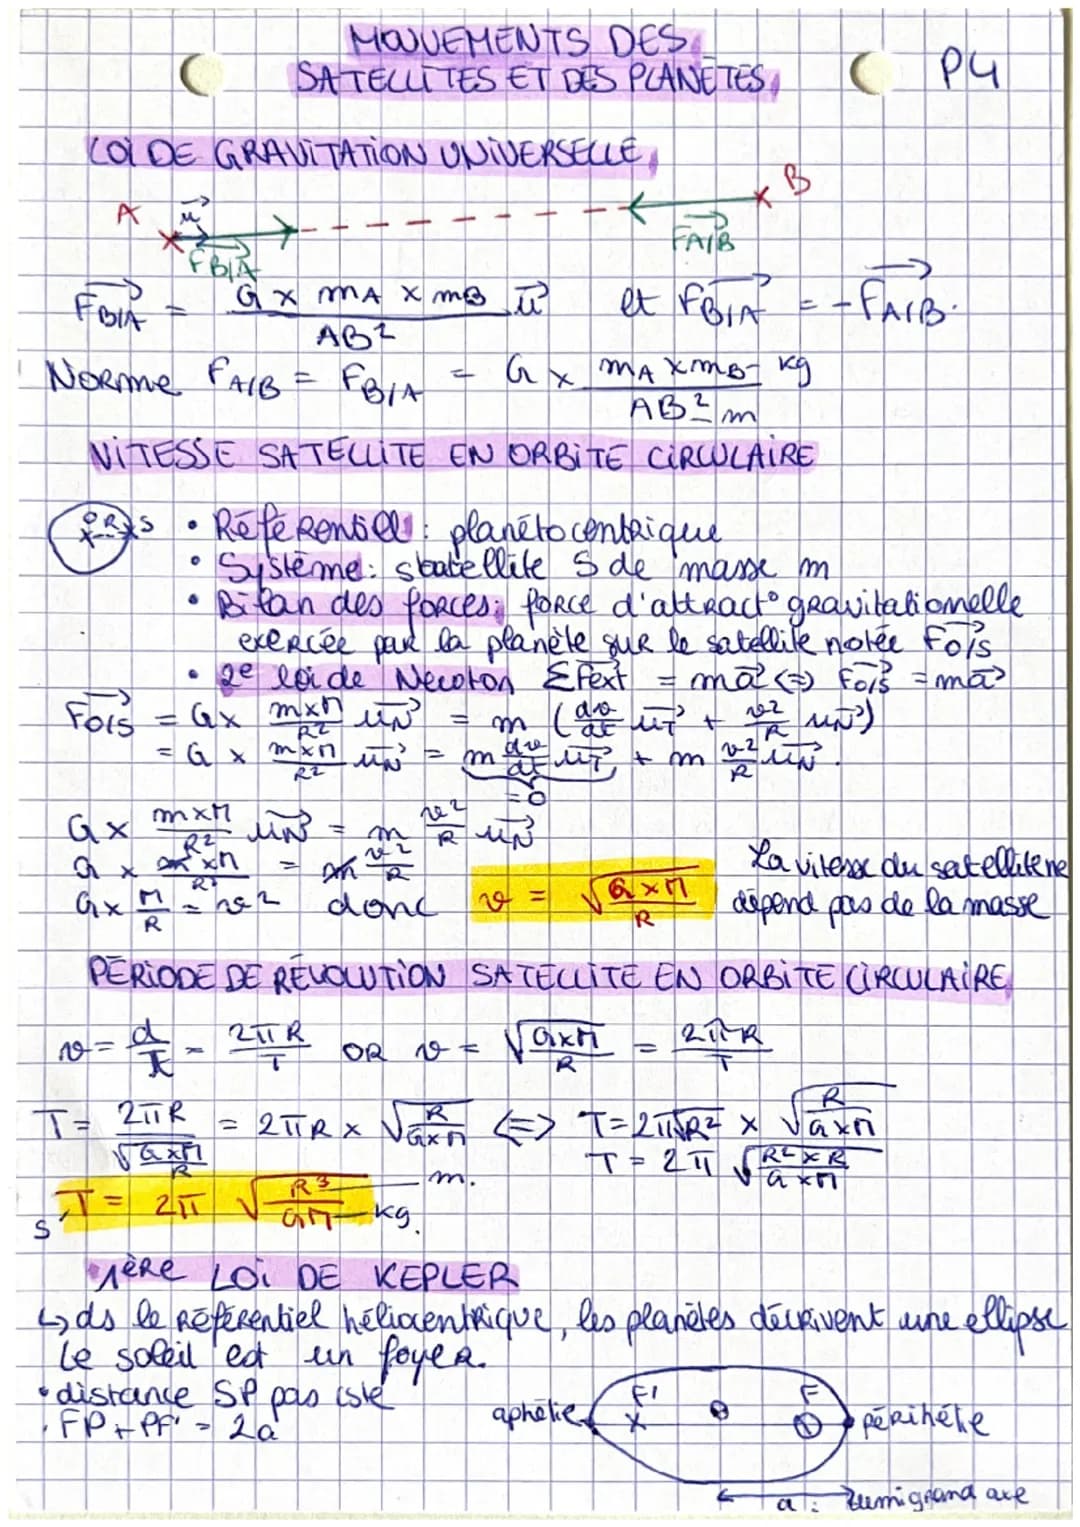 MOUVEMENTS DES
SATELLITES ET DES PLANÈTES
P4
LOI DE GRAVITATION UNIVERSELLE
A u⃗ F⃗B/A F⃗A/B B
F⃗B/A = (G × mA × mB)/AB² u⃗ et F⃗B/A = -F⃗A/B.
Norme FA/B = FB/A = G × (mA × mB)/AB² kg m
VITESSE SATELLITE EN ORBITE CIRCULAIRE
O R S
• Référentiel : planétocentrique
• Système : satellite S de masse m
• Bilan des forces : force d'attract° gravitationnelle
exercée par la planète sur le satellite notée F⃗O/S
• 2e loi de Newton ΣF⃗ext = ma⃗ <=> F⃗O/S = ma⃗
F⃗O/S = G × (m×M)/R² u⃗N = m (dv/dt u⃗T + v²/R u⃗N)
= G × (m×M)/R² u⃗N = m dv/dt u⃗T + m v²/R u⃗N.
= 0
G × (m×M)/R² u⃗N = m v²/R u⃗N
G × (m×M)/R² = m v²/R
G × M/R = v² donc v = √((G×M)/R)
La vitesse du satellite ne
dépend pas de la masse
PÉRIODE DE RÉVOLUTION SATELLITE EN ORBITE CIRCULAIRE
v = d/t = 2πR/T OR v = √((G×M)/R) = 2πR/T
T = 2πR/√((G×M)/R) = 2πR × √(R/(G×M)) <=> T = 2π√R² × √(R/(G×M))
T = 2π √((R²×R)/(G×M))
s T = 2π √(R³/GM) m. kg.
1ÈRE LOI DE KEPLER
↳ ds le référentiel héliocentrique, les planètes décrivent une ellipse
Le soleil est un foyer.
• distance SP pas cste
• FP + PF' = 2a
aphélie F' F périhélie
a : demi grand axe